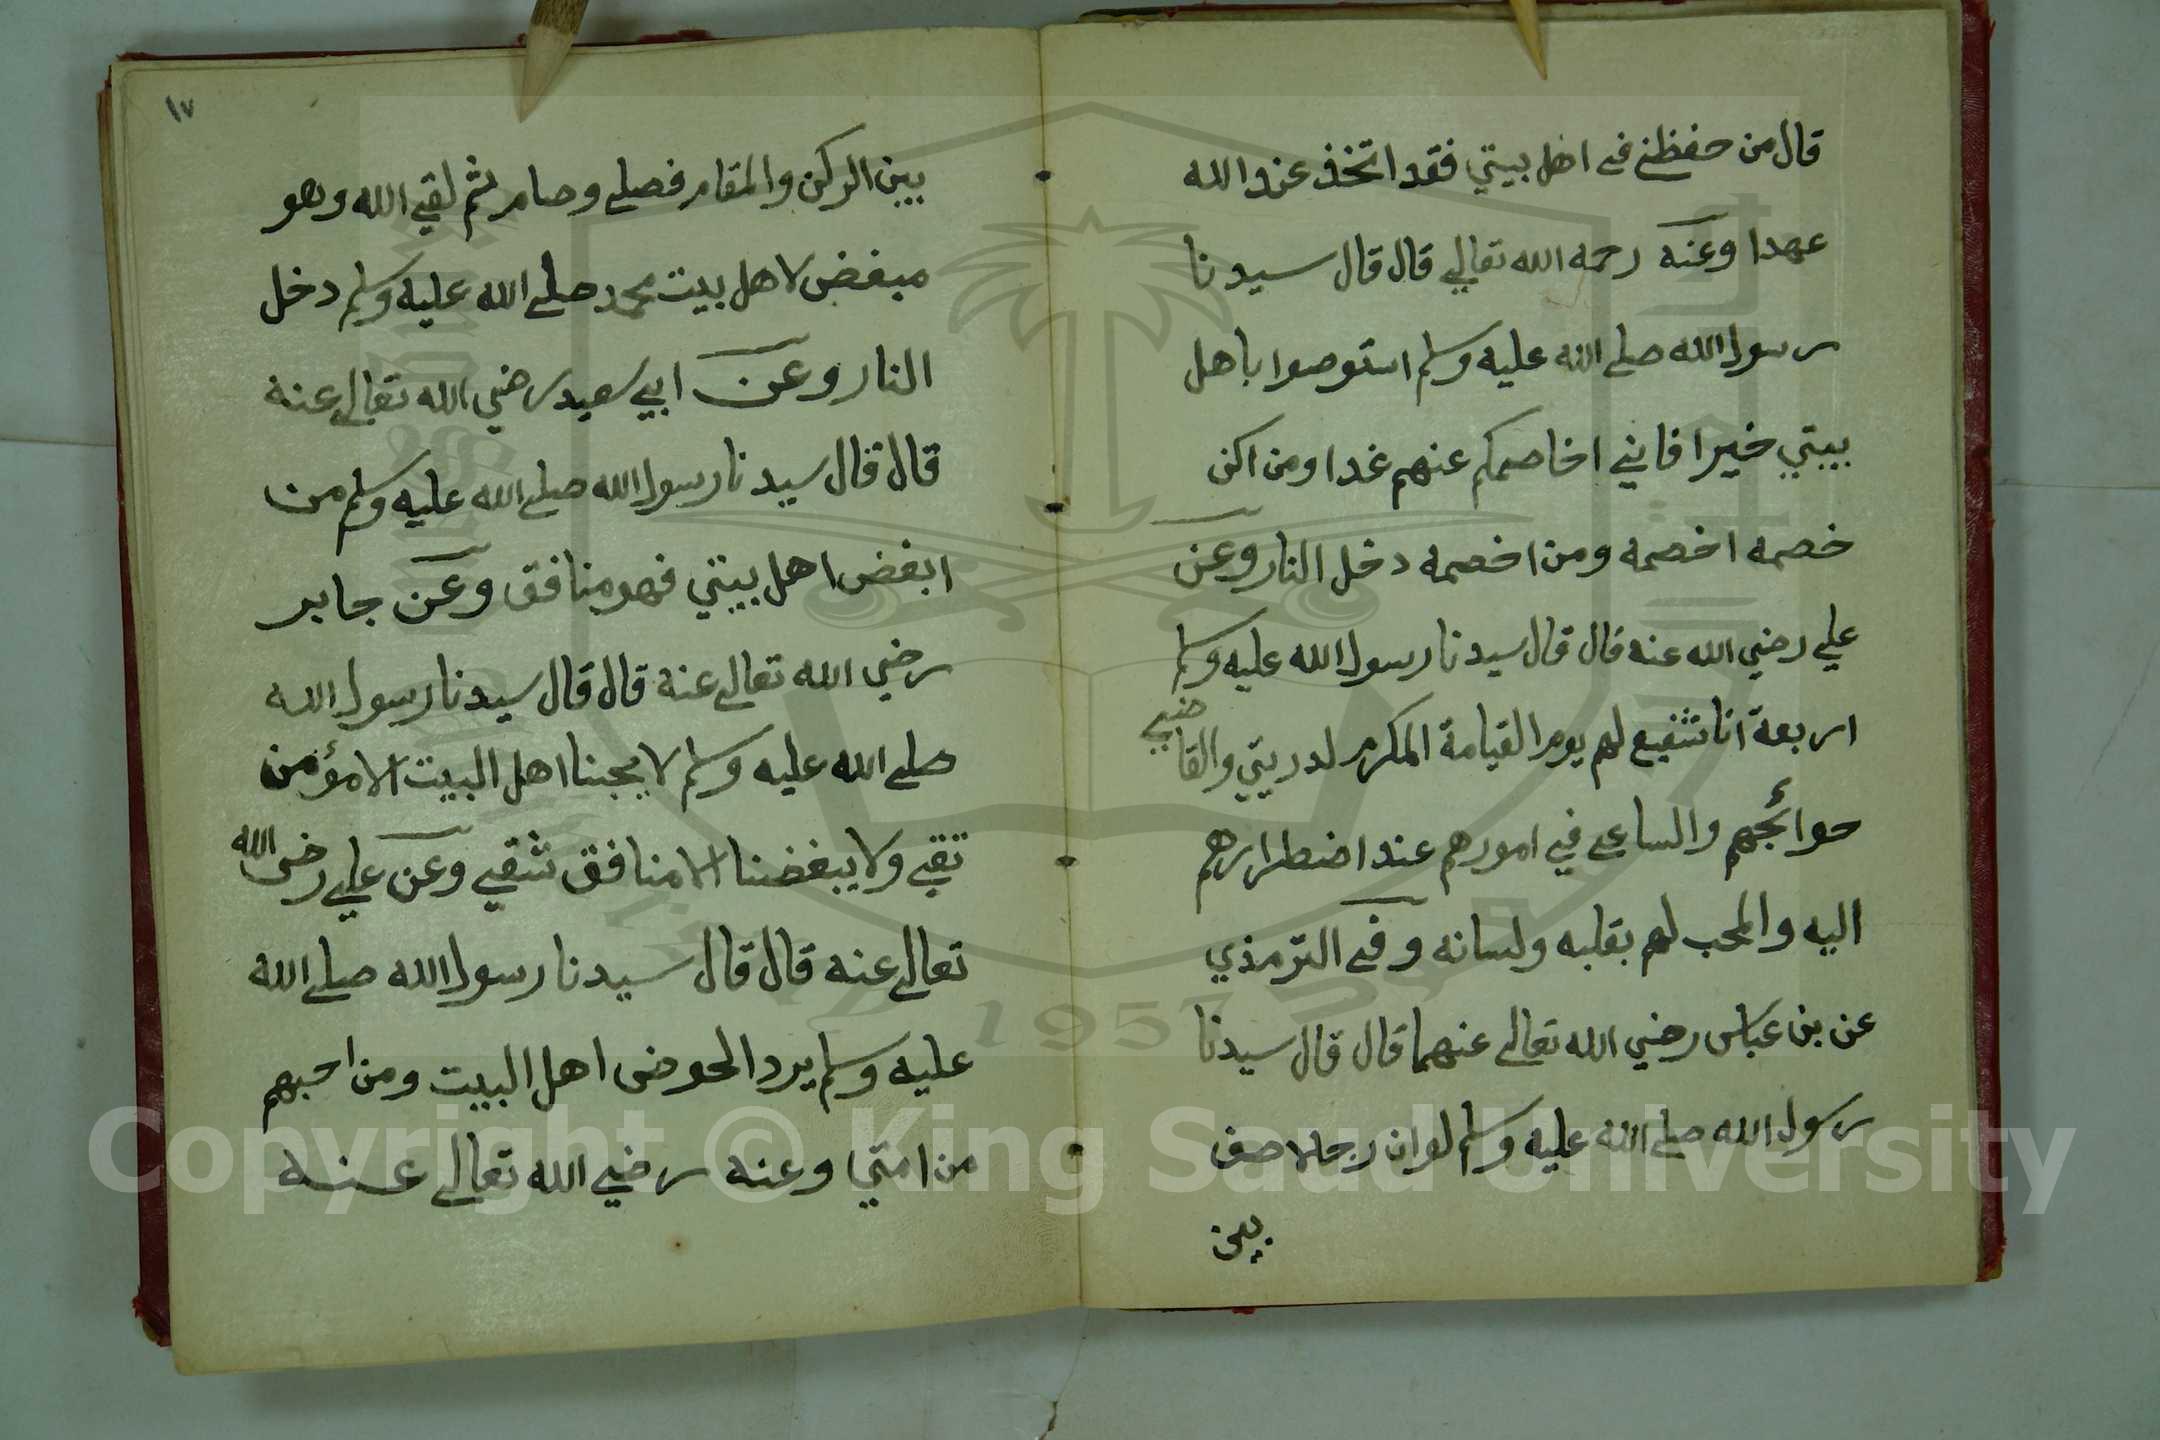 قال من حفظني في اهل بيتي فقد اتخذ عند الله
عهدا وعنه رحمه الله تعالي قال قال سيدنا
رسول الله صلي الله عليه وسلم استوصوا باهل
بيتي خيرا فاني اخاصمكم عنهم غدا ومن اكن
خصمه اخصمه ومن اخصمه دخل النار وعن
علي رضي الله عنه قال قال سيدنا رسول الله عليه وسلم
اربعة انا شفيع لهم يوم القيامة المكرم لدريتي والقاضي
حوائجهم والساعي في امورهم عند اضطرارهم
اليه والمحب لهم بقلبه ولسانه وفي الترمذي
عن بن عباس رضي الله تعالي عنهما قال قال سيدنا
رسول الله صلي الله عليه وسلم لو ان رجلا صف
بين
١٧
بين الركن والمقام فصلي وصام ثم لقي الله وهو
مبغض لاهل بيت محمد صلي الله عليه وسلم دخل
النار وعن ابي سعيد رضي الله تعالي عنه
قال قال سيدنا رسول الله صلي الله عليه وسلم من
ابغض اهل بيتي فهو منافق وعن جابر
رضي الله تعالي عنه قال قال سيدنا رسول الله
صلي الله عليه وسلم لا يحبنا اهل البيت الا مؤمن
تقي ولا يبغضنا الا منافق شقي وعن علي رضى الله
تعالي عنه قال قال سيدنا رسول الله صلي الله
عليه وسلم يرد الحوض اهل البيت ومن احبهم
من امتي وعنه رضي الله تعالي عنه
Copyright © King Saud University
1957